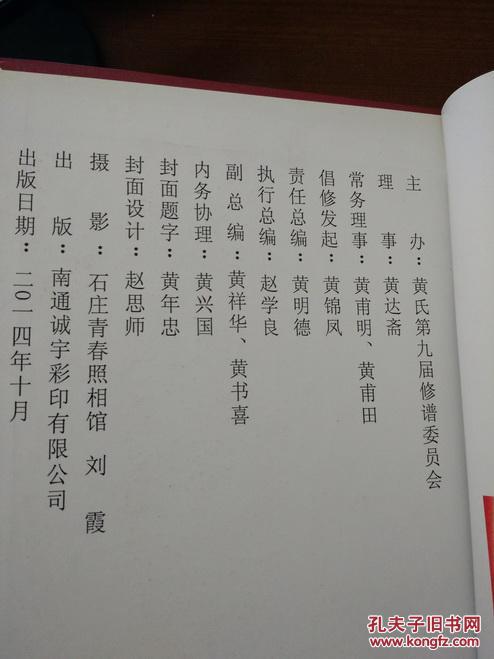 主办：黄氏第九届修谱委员会
理事：黄达斋
常务理事：黄甫明、黄甫田
倡修发起：黄锦凤
责任总编：黄明德
执行总编：赵学良
副总编：黄祥华、黄书喜
内务协理：黄兴国
封面题字：黄年忠
封面设计：赵思师
摄影：石庄青春照相馆 刘霞
出版：南通诚宇彩印有限公司
出版日期：二〇一四年十月
孔夫子旧书网